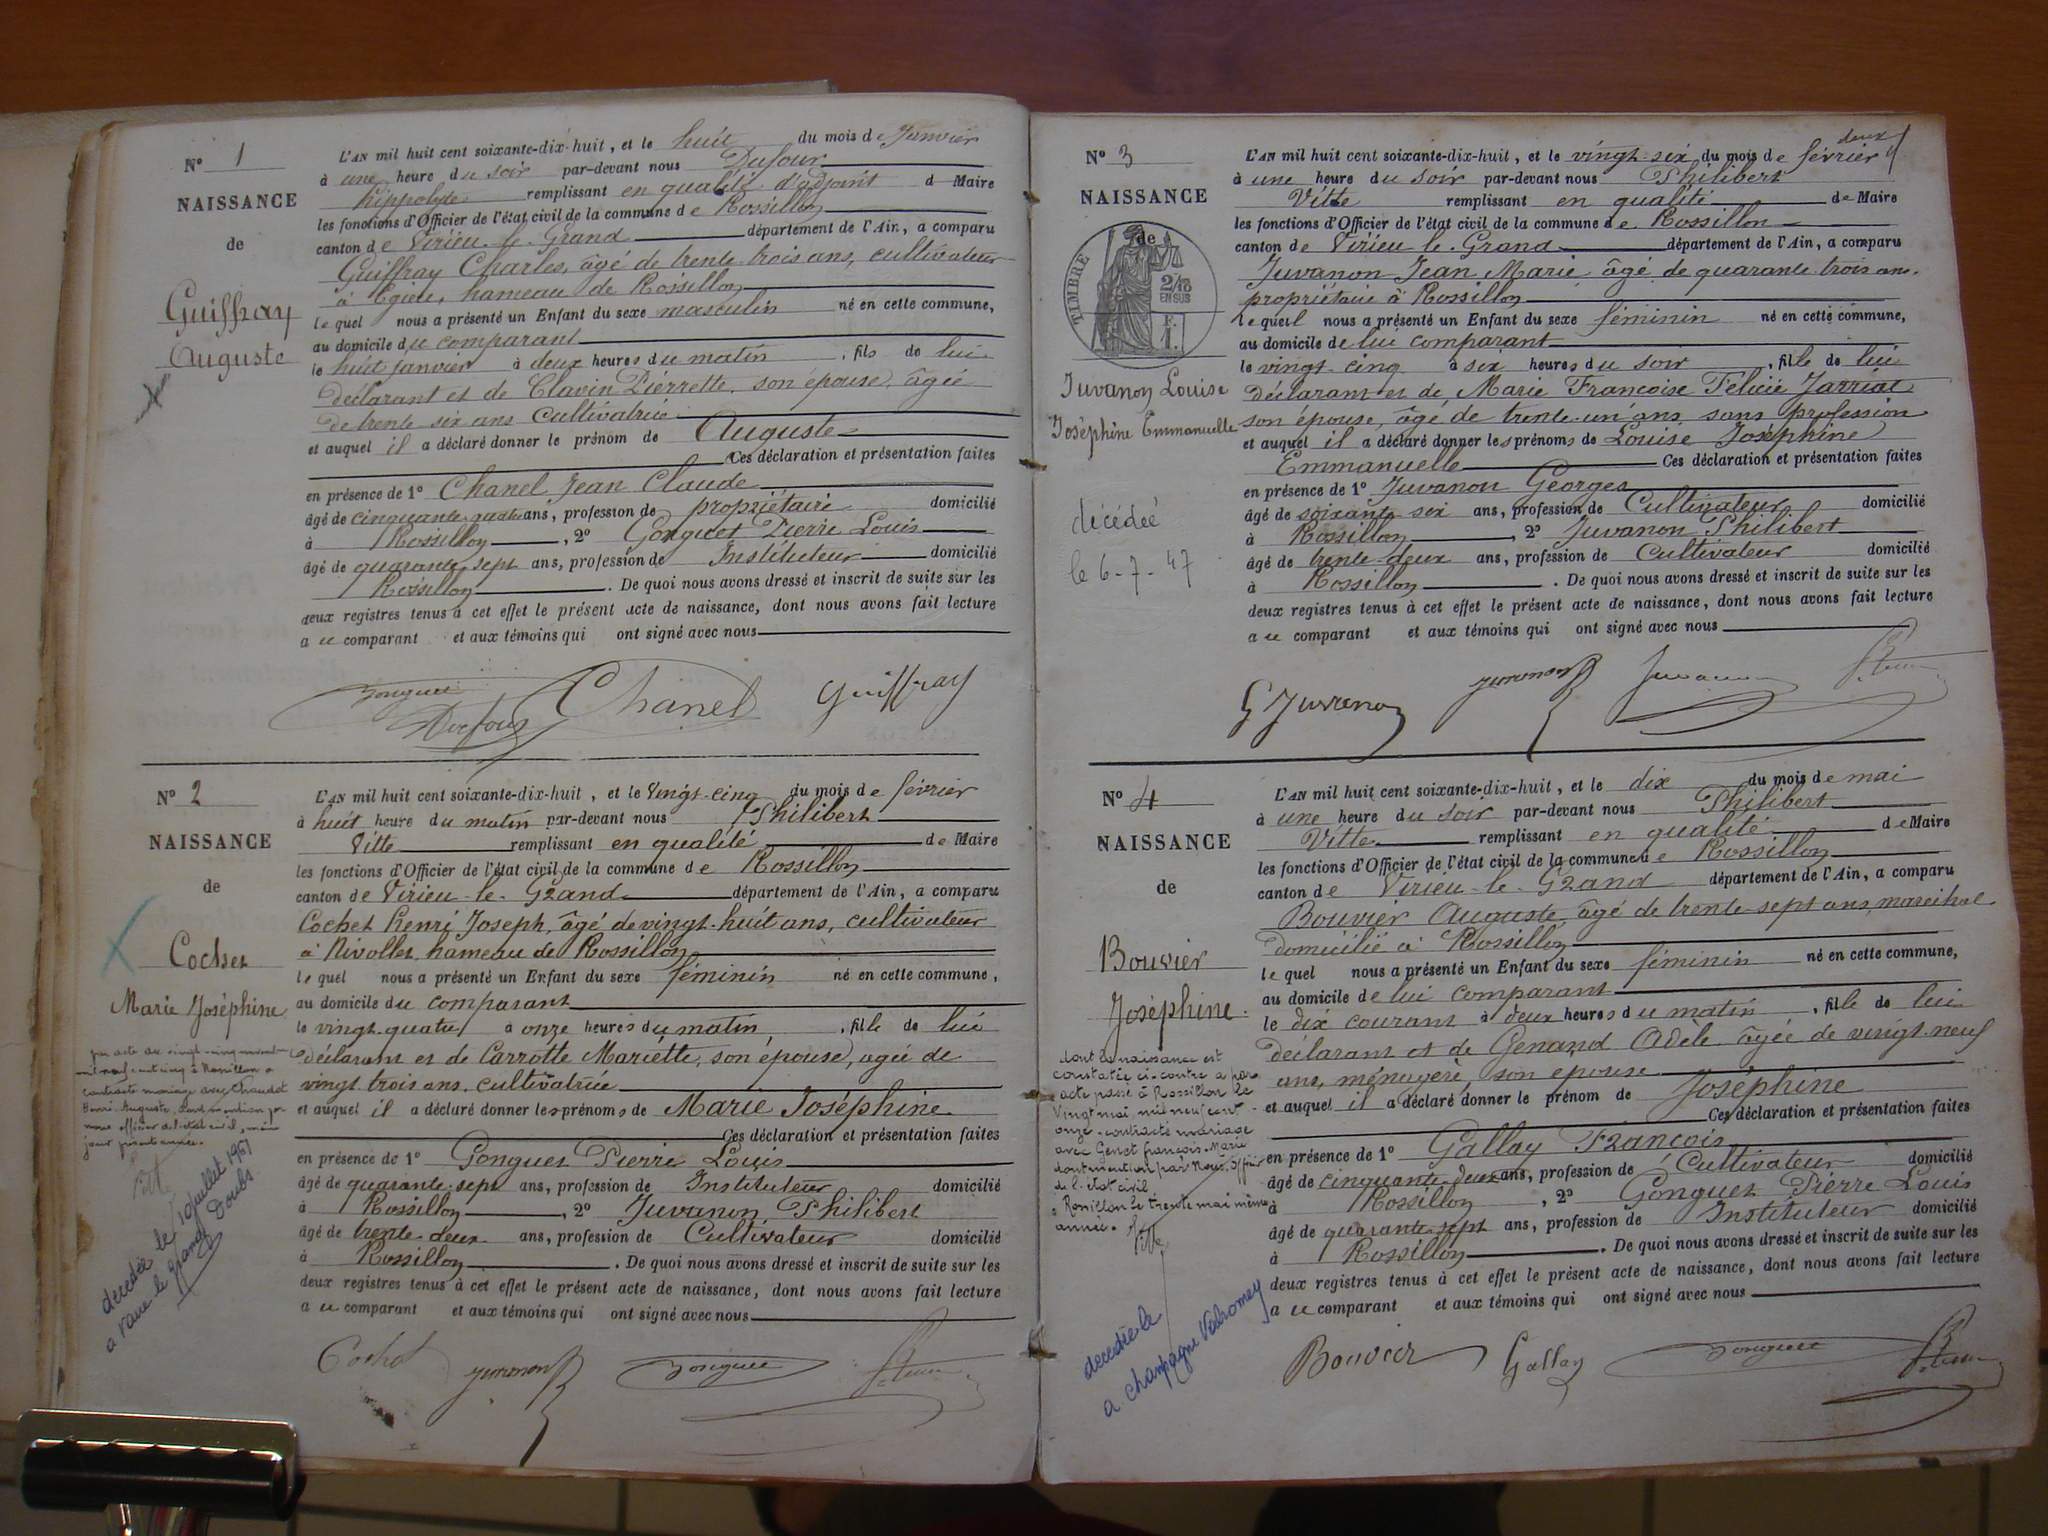 N° 1
NAISSANCE
de
Guiffray
Auguste
L'AN mil huit cent soixante-dix-huit, et le huit du mois de Janvier
à une heure du soir par-devant nous Dufour
hippolyte remplissant en qualité d'adjoint d Maire
les fonctions d'Officier de l'état civil de la commune de Rossillon
canton de Virieu-le-Grand département de l'Ain, a comparu
Guiffray Charles, âgé de trente-trois ans, cultivateur
à Egieu, hameau de Rossillon
lequel nous a présenté un Enfant du sexe masculin né en cette commune,
au domicile du comparant
le huit janvier à deux heures du matin, fils de lui
déclarant et de Clavin Pierrette, son épouse, âgée
de trente six ans cultivatrice
et auquel il a déclaré donner le prénom de Auguste
Ces déclaration et présentation faites
en présence de 1° Chanel Jean Claude
âgé de cinquante-quatre ans, profession de propriétaire domicilié
à Rossillon, 2° Gonguet Pierre Louis
âgé de quarante sept ans, profession de Instituteur domicilié
Rossillon. De quoi nous avons dressé et inscrit de suite sur les
deux registres tenus à cet effet le présent acte de naissance, dont nous avons fait lecture
au comparant et aux témoins qui ont signé avec nous
Gonguet Dufour Chanel Guiffray
N° 2
NAISSANCE
de
Cochet
Marie Joséphine
par acte du vingt-cinq
mil neuf cent cinq à Rossillon a
contracté mariage avec Chaudet
Henri Auguste, dont mention par
nous officier de l'état civil, même
jour présente année.
Vitte
décédée le 10 juillet 1961
a vaux le grand Doubs
L'AN mil huit cent soixante-dix-huit, et le Vingt-cinq du mois de février
à huit heure du matin par-devant nous Philibert
Vitte remplissant en qualité de Maire
les fonctions d'Officier de l'état civil de la commune de Rossillon
canton de Virieu-le-Grand département de l'Ain, a comparu
Cochet Henri Joseph, âgé de vingt-huit ans, cultivateur
à Rivollet, hameau de Rossillon
lequel nous a présenté un Enfant du sexe féminin né en cette commune,
au domicile du comparant
le vingt-quatre à onze heures du matin, fille de lui
déclarant et de Carrotte Mariette, son épouse, agée de
vingt trois ans, cultivatrice
et auquel il a déclaré donner les prénoms de Marie Joséphine
Ces déclaration et présentation faites
en présence de 1° Gonguet Pierre Louis
âgé de quarante-sept ans, profession de Instituteur domicilié
à Rossillon, 2° Juvanon Philibert
âgé de trente-deux ans, profession de Cultivateur domicilié
à Rossillon. De quoi nous avons dressé et inscrit de suite sur les
deux registres tenus à cet effet le présent acte de naissance, dont nous avons fait lecture
au comparant et aux témoins qui ont signé avec nous
Cochet Juvanon Gonguet
N° 3
NAISSANCE
de
TIMBRE
2/10
EN SUS
F.
1.
Juvanon Louise
Joséphine Emmanuelle
décédeé
le 6-7-47
deux
L'AN mil huit cent soixante-dix-huit, et le vingt-six du mois de février
à une heure du soir par-devant nous Philibert
Vitte remplissant en qualité de Maire
les fonctions d'Officier de l'état civil de la commune de Rossillon
canton de Virieu-le-Grand département de l'Ain, a comparu
Juvanon Jean Marie âgé de quarante-trois ans,
propriétaire à Rossillon
lequel nous a présenté un Enfant du sexe féminin né en cette commune,
au domicile de lui comparant
le vingt-cinq à six heures du soir, fille de lui
déclarant et de Marie Françoise Félicie Jarriat
son épouse, âgé de trente-un ans, sans profession
et auquel il a déclaré donner les prénoms de Louise Joséphine
Emmanuelle Ces déclaration et présentation faites
en présence de 1° Juvanon Georges
âgé de soixante six ans, profession de Cultivateur domicilié
à Rossillon, 2° Juvanon Philibert
âgé de trente-deux ans, profession de Cultivateur domicilié
à Rossillon. De quoi nous avons dressé et inscrit de suite sur les
deux registres tenus à cet effet le présent acte de naissance, dont nous avons fait lecture
au comparant et aux témoins qui ont signé avec nous
G Juvanon Juvanon Juvanon
N° 4
NAISSANCE
de
Bouvier
Joséphine
dont la naissance est
constatée ci-contre a par
acte passé à Rossillon le
Vingt mai mil neuf cent
onze contracté mariage
avec Genet françois Marie
dont mention par Nous, Officier
de l'état civil
à Rossillon le trente mai même
année.
Vitte
décédée le
a champagne Valromey
L'AN mil huit cent soixante-dix-huit, et le dix du mois de mai
à une heure du soir par-devant nous Philibert
Vitte remplissant en qualité de Maire
les fonctions d'Officier de l'état civil de la commune de Rossillon
canton de Virieu-le-Grand département de l'Ain, a comparu
Bouvier Auguste, âgé de trente-sept ans, maréchal
domicilié à Rossillon
lequel nous a présenté un Enfant du sexe féminin né en cette commune,
au domicile de lui comparant
le dix courant à deux heures du matin, fille de lui
déclarant et de Genand Adèle âgée de vingt-neuf
ans, ménagère, son épouse
et auquel il a déclaré donner le prénom de Joséphine
Ces déclaration et présentation faites
en présence de 1° Gallay François
âgé de cinquante-deux ans, profession de Cultivateur domicilié
à Rossillon, 2° Gonguet Pierre Louis
âgé de quarante-sept ans, profession de Instituteur domicilié
à Rossillon. De quoi nous avons dressé et inscrit de suite sur les
deux registres tenus à cet effet le présent acte de naissance, dont nous avons fait lecture
au comparant et aux témoins qui ont signé avec nous
Bouvier Gallay Gonguet